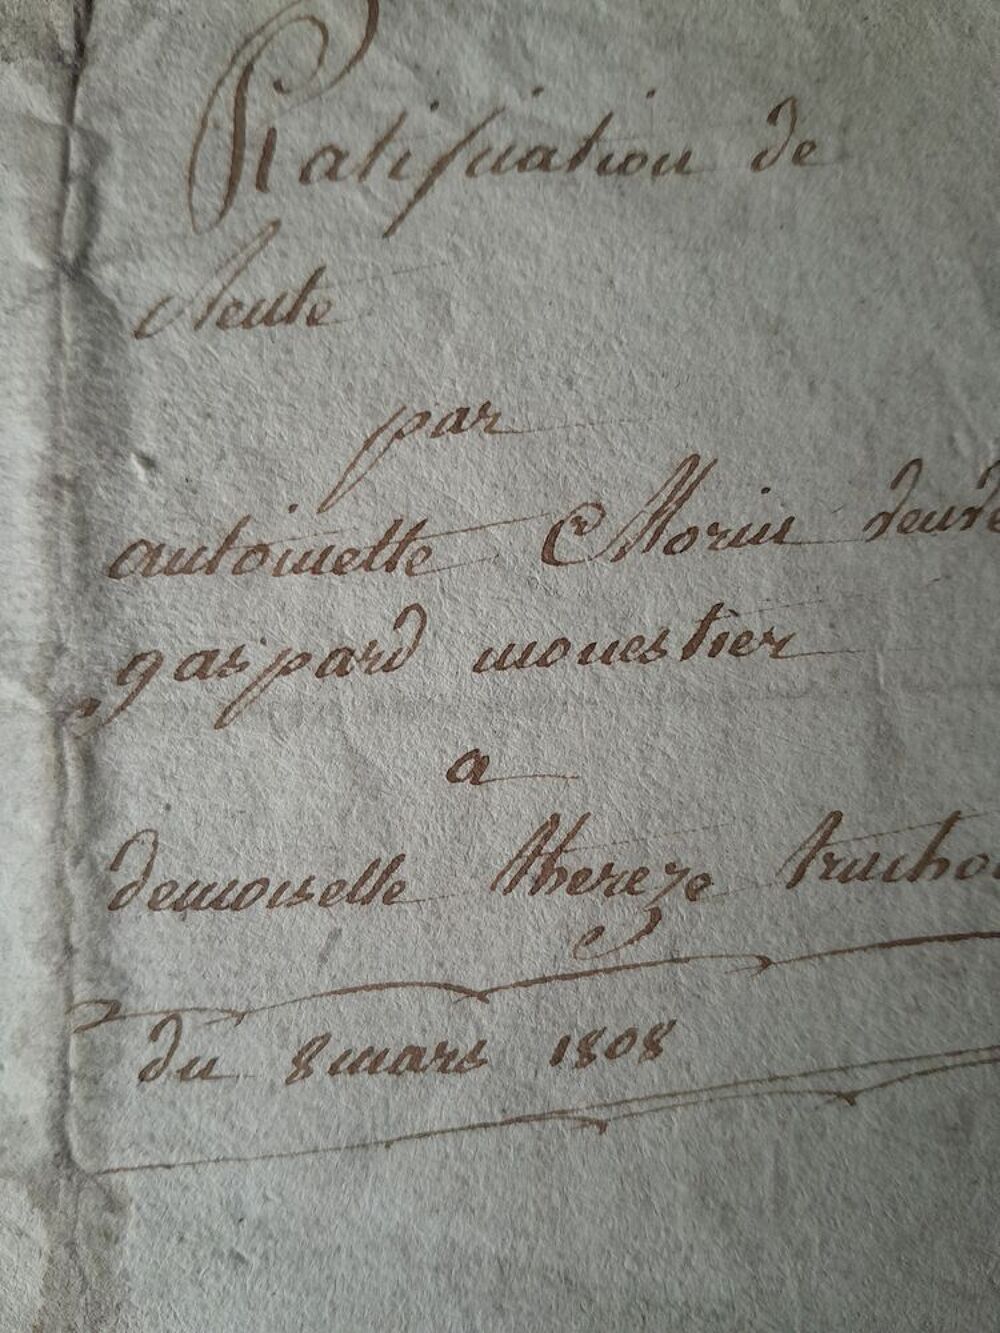 Ratification de
Vente
par
antoinette Morin veuve
gaspard monestier
a
demoiselle thereze
du 8 mars 1808